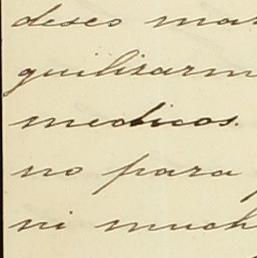 deseo mas
quilizarm
medicos.
no para
ni much